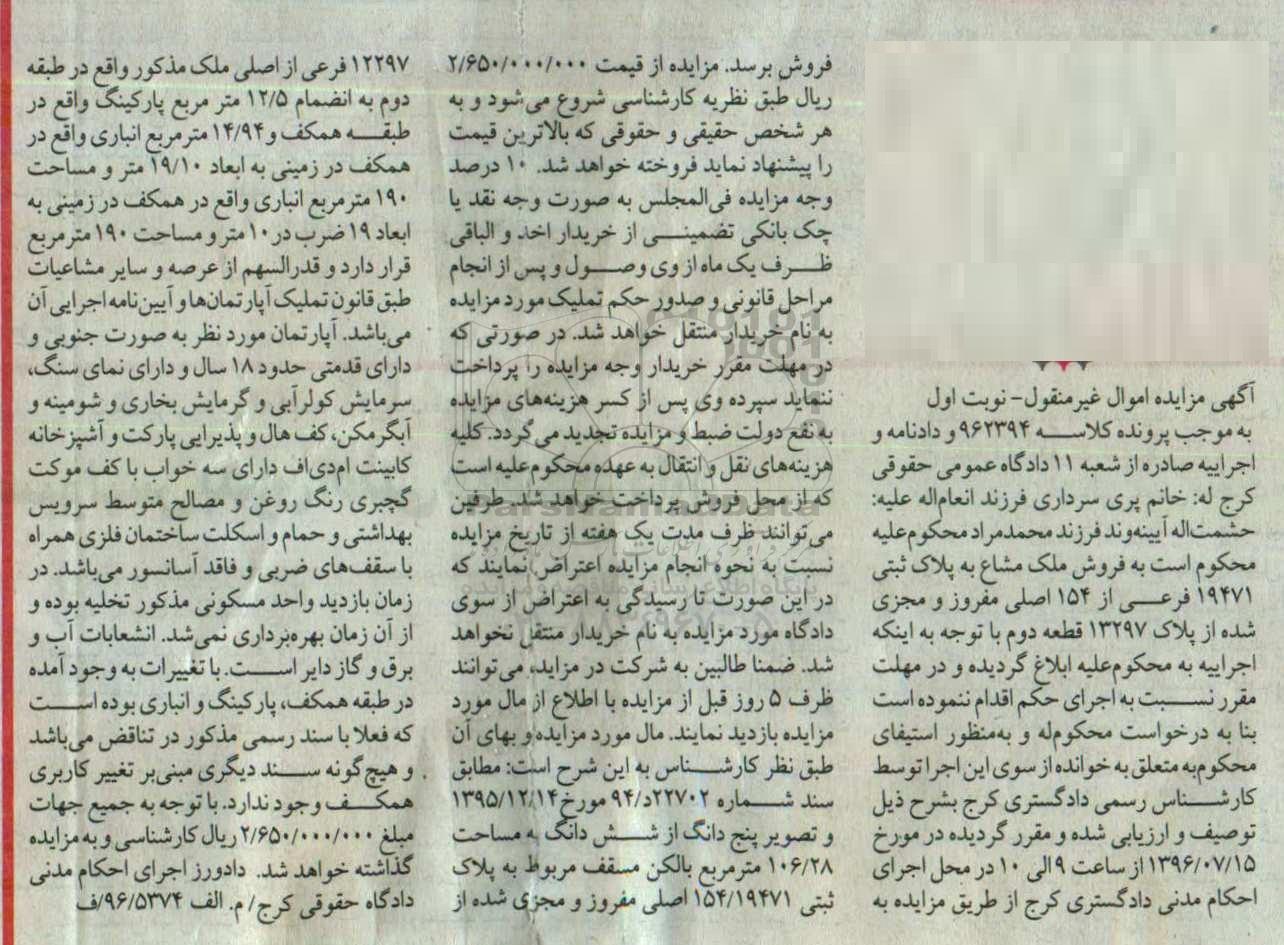 آگهی مزایده اموال غیرمنقول- نوبت اول
به موجب پرونده کلاسه ۹۶۲۳۹۴ و دادنامه و
اجراییه صادره از شعبه ۱۱ دادگاه عمومی حقوقی
کرج له: خانم پری سرداری فرزند انعام‌اله علیه:
حشمت‌اله آیینه‌وند فرزند محمدمراد محکوم‌علیه
محکوم است به فروش ملک مشاع به پلاک ثبتی
۱۹۴۷۱ فرعی از ۱۵۴ اصلی مفروز و مجزی
شده از پلاک ۱۳۲۹۷ قطعه دوم با توجه به اینکه
اجراییه به محکوم‌علیه ابلاغ گردیده و در مهلت
مقرر نسبت به اجرای حکم اقدام ننموده است
بنا به درخواست محکوم‌له و به‌منظور استیفای
محکوم‌به متعلق به خوانده از سوی این اجرا توسط
کارشناس رسمی دادگستری کرج بشرح ذیل
توصیف و ارزیابی شده و مقرر گردیده در مورخ
۱۳۹۶/۰۷/۱۵ از ساعت ۹ الی ۱۰ در محل اجرای
احکام مدنی دادگستری کرج از طریق مزایده به
فروش برسد. مزایده از قیمت ۲/۶۵۰/۰۰۰/۰۰۰
ریال طبق نظریه کارشناسی شروع می‌شود و به
هر شخص حقیقی و حقوقی که بالاترین قیمت
را پیشنهاد نماید فروخته خواهد شد. ۱۰ درصد
وجه مزایده فی‌المجلس به صورت وجه نقد یا
چک بانکی تضمینی از خریدار اخذ و الباقی
ظرف یک ماه از وی وصول و پس از انجام
مراحل قانونی و صدور حکم تملیک مورد مزایده
به نام خریدار منتقل خواهد شد. در صورتی که
در مهلت مقرر خریدار وجه مزایده را پرداخت
ننماید سپرده وی پس از کسر هزینه‌های مزایده
به نفع دولت ضبط و مزایده تجدید می‌گردد. کلیه
هزینه‌های نقل و انتقال به عهده محکوم‌علیه است
که از محل فروش پرداخت خواهد شد. طرفین
می‌توانند ظرف مدت یک هفته از تاریخ مزایده
نسبت به نحوه انجام مزایده اعتراض نمایند که
در این صورت تا رسیدگی به اعتراض از سوی
دادگاه مورد مزایده به نام خریدار منتقل نخواهد
شد. ضمنا طالبین به شرکت در مزایده می‌توانند
ظرف ۵ روز قبل از مزایده با اطلاع از مال مورد
مزایده بازدید نمایند. مال مورد مزایده و بهای آن
طبق نظر کارشناس به این شرح است: مطابق
سند شماره ۲۲۷۰۲د/۹۴ مورخ ۱۳۹۵/۱۲/۱۴
و تصویر پنج دانگ از شش دانگ به مساحت
۱۰۶/۲۸ مترمربع بالکن مسقف مربوط به پلاک
ثبتی ۱۵۴/۱۹۴۷۱ اصلی مفروز و مجزی شده از
۱۲۲۹۷ فرعی از اصلی ملک مذکور واقع در طبقه
دوم به انضمام ۱۲/۵ متر مربع پارکینگ واقع در
طبقه همکف و ۱۴/۹۴ مترمربع انباری واقع در
همکف در زمینی به ابعاد ۱۹/۱۰ متر و مساحت
۱۹۰ مترمربع انباری واقع در همکف در زمینی به
ابعاد ۱۹ ضرب در ۱۰ متر و مساحت ۱۹۰ مترمربع
قرار دارد و قدرالسهم از عرصه و سایر مشاعیات
طبق قانون تملیک آپارتمان‌ها و آیین‌نامه اجرایی آن
می‌باشد. آپارتمان مورد نظر به صورت جنوبی و
دارای قدمتی حدود ۱۸ سال و دارای نمای سنگ،
سرمایش کولرآبی و گرمایش بخاری و شومینه و
آبگرمکن، کف هال و پذیرایی پارکت و آشپزخانه
کابینت ام‌دی‌اف دارای سه خواب با کف موکت
گچبری رنگ روغن و مصالح متوسط سرویس
بهداشتی و حمام و اسکلت ساختمان فلزی همراه
با سقف‌های ضربی و فاقد آسانسور می‌باشد. در
زمان بازدید واحد مسکونی مذکور تخلیه بوده و
از آن زمان بهره‌برداری نمی‌شد. انشعابات آب و
برق و گاز دایر است. با تغییرات به وجود آمده
در طبقه همکف، پارکینگ و انباری بوده است
که فعلا با سند رسمی مذکور در تناقض می‌باشد
و هیچ گونه سند دیگری مبنی‌بر تغییر کاربری
همکف وجود ندارد. با توجه به جمیع جهات
مبلغ ۲/۶۵۰/۰۰۰/۰۰۰ ریال کارشناسی و به مزایده
گذاشته خواهد شد. دادورز اجرای احکام مدنی
دادگاه حقوقی کرج/ م. الف ۹۶/۵۳۷۴/ف